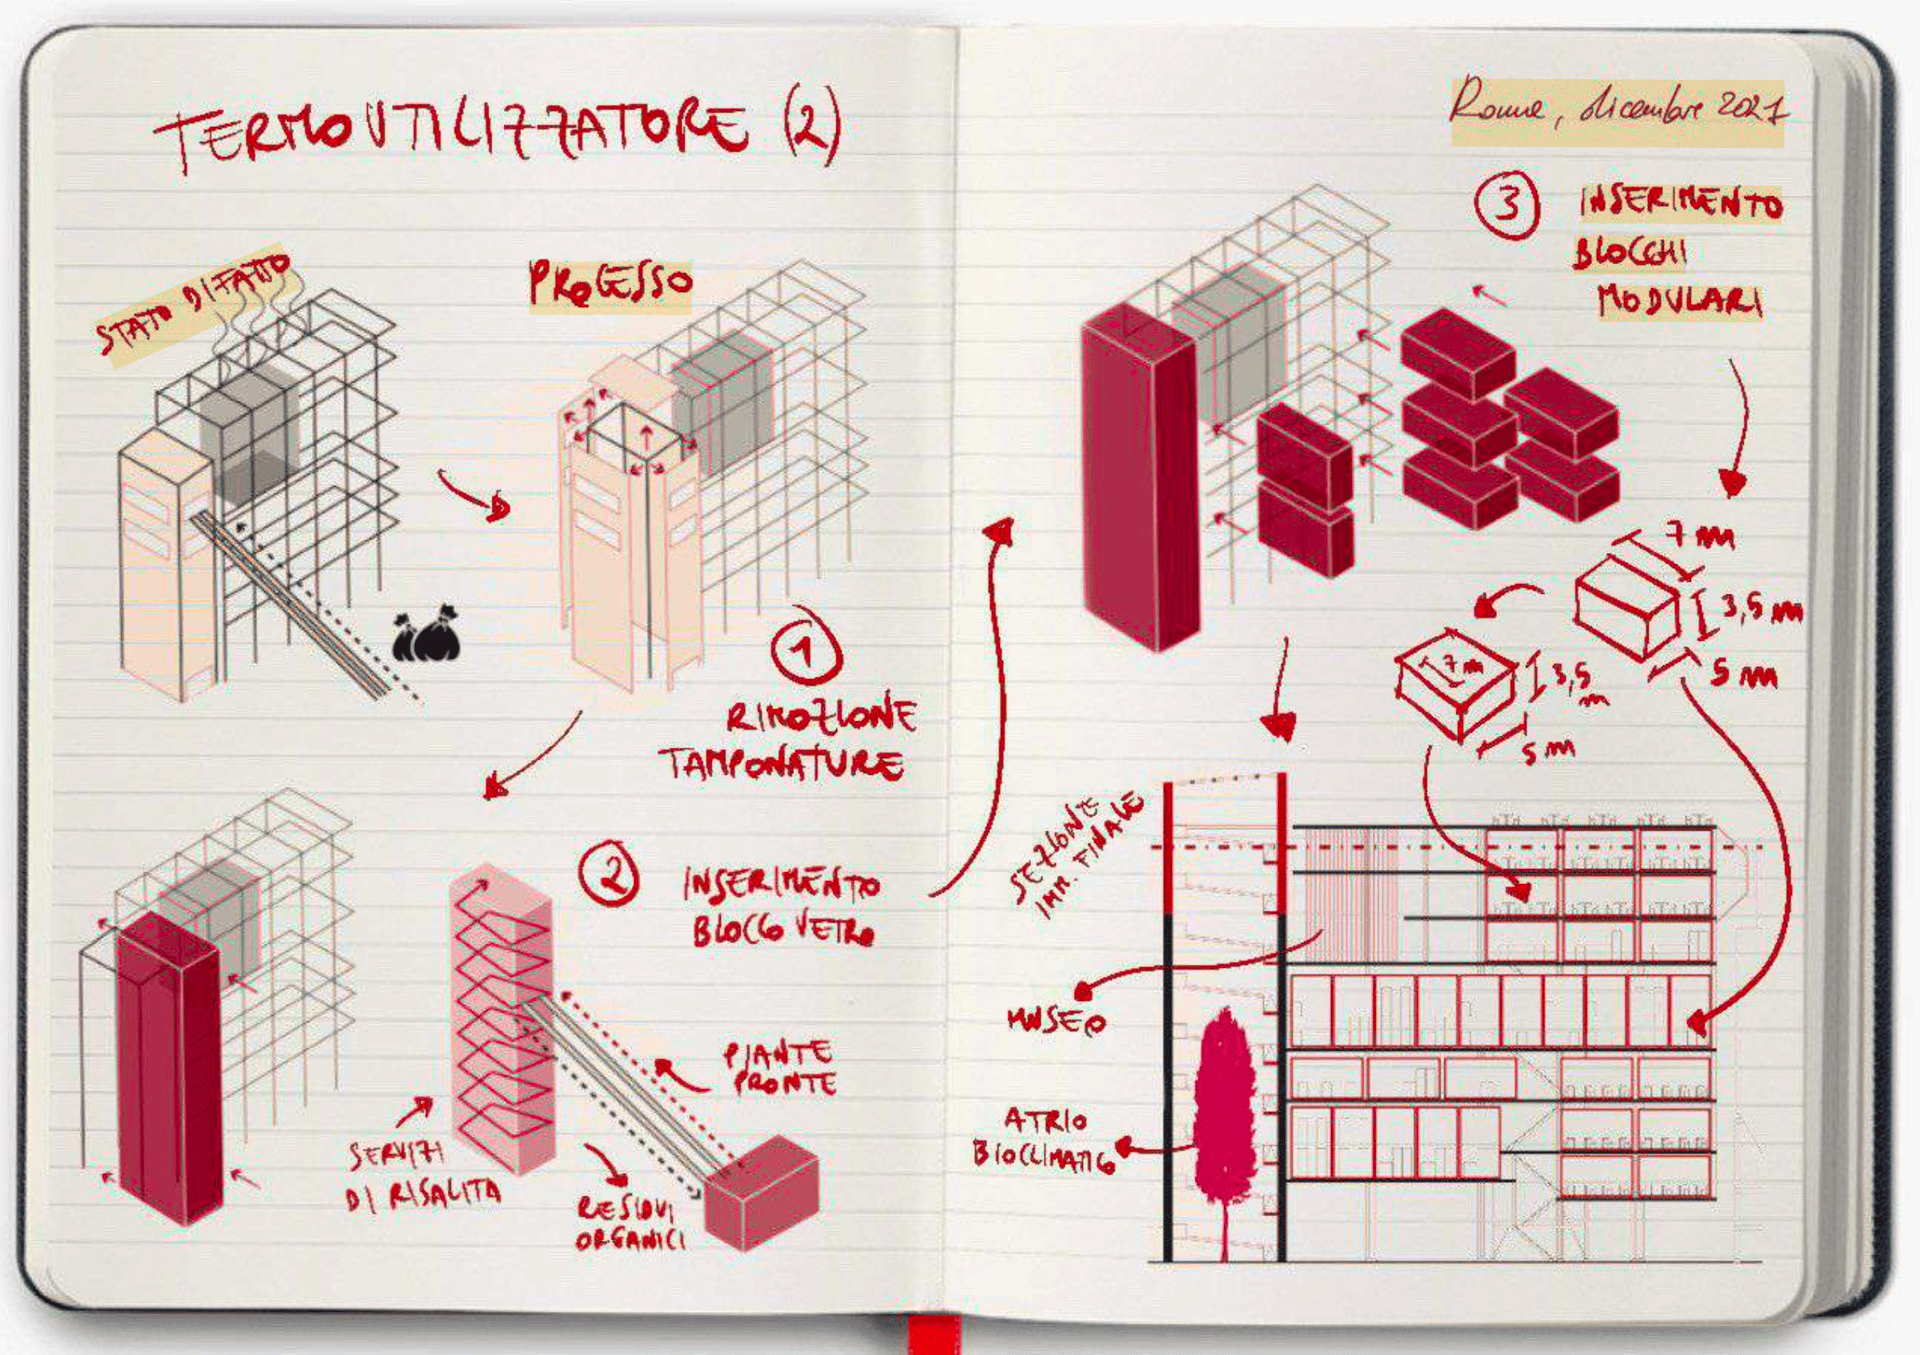 TERMOUTILIZZATORE (2)
STATO DI FATTO
PROCESSO
1
RIMOZIONE
TAMPONATURE
2
INSERIMENTO
BLOCCO VETRO
PIANTE
PRONTE
SERVIZI
DI RISALITA
RESIDUI
ORGANICI
Roma, dicembre 2021
3
INSERIMENTO
BLOCCHI
MODULARI
7 m
3,5 m
5 m
7 m
3,5
m
5 m
SEZIONE
IMM. FINALE
MUSEO
ATRIO
BIOCLIMATICO